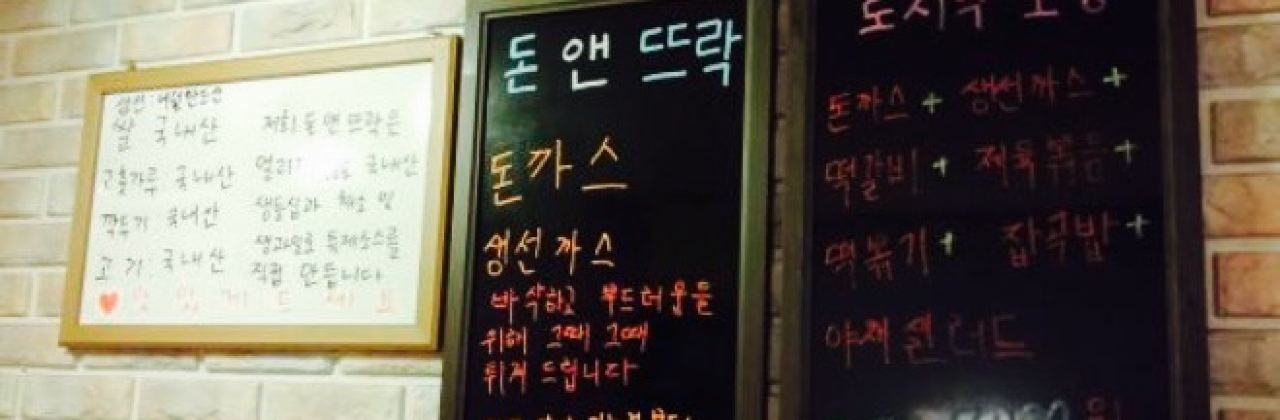 쌀 국내산
고춧가루 국내산
깍두기 국내산
고기 국내산
저희 돈앤뜨락은
국내산
생등심과 채소 및
생과일로 특제소스를
직접 만듭니다
맛있게 드세요
돈앤뜨락
돈까스
생선까스
바삭하고 부드러움을
위해 그때 그때
튀겨 드립니다
돈까스 + 생선까스 +
떡갈비 + 제육볶음 +
떡볶기 + 잡곡밥 +
야채샐러드